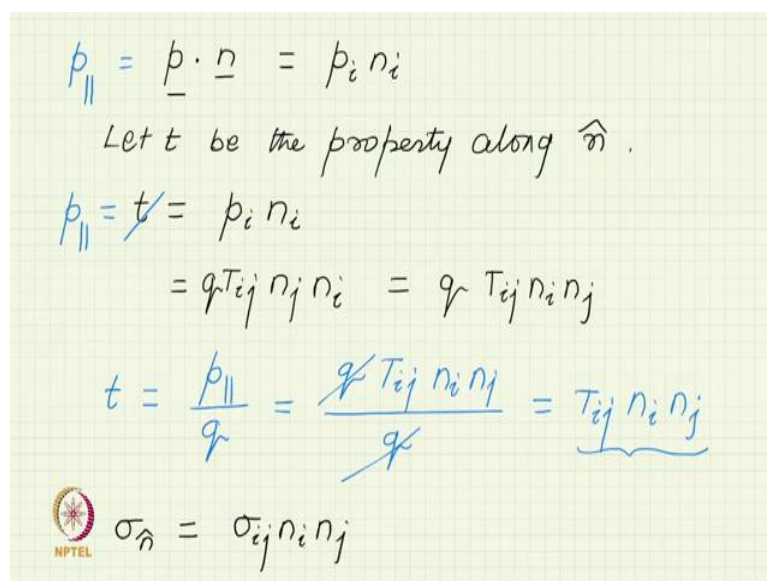 p∥ = p · n = pᵢ nᵢ
Let t be the property along n̂ .
p∥ = t̸ = pᵢ nᵢ
= qTᵢⱼ nⱼ nᵢ = q Tᵢⱼ nᵢ nⱼ
t = p∥ / q = q̸ Tᵢⱼ nᵢ nⱼ / q̸ = Tᵢⱼ nᵢ nⱼ
σn̂ = σᵢⱼ nᵢ nⱼ
NPTEL